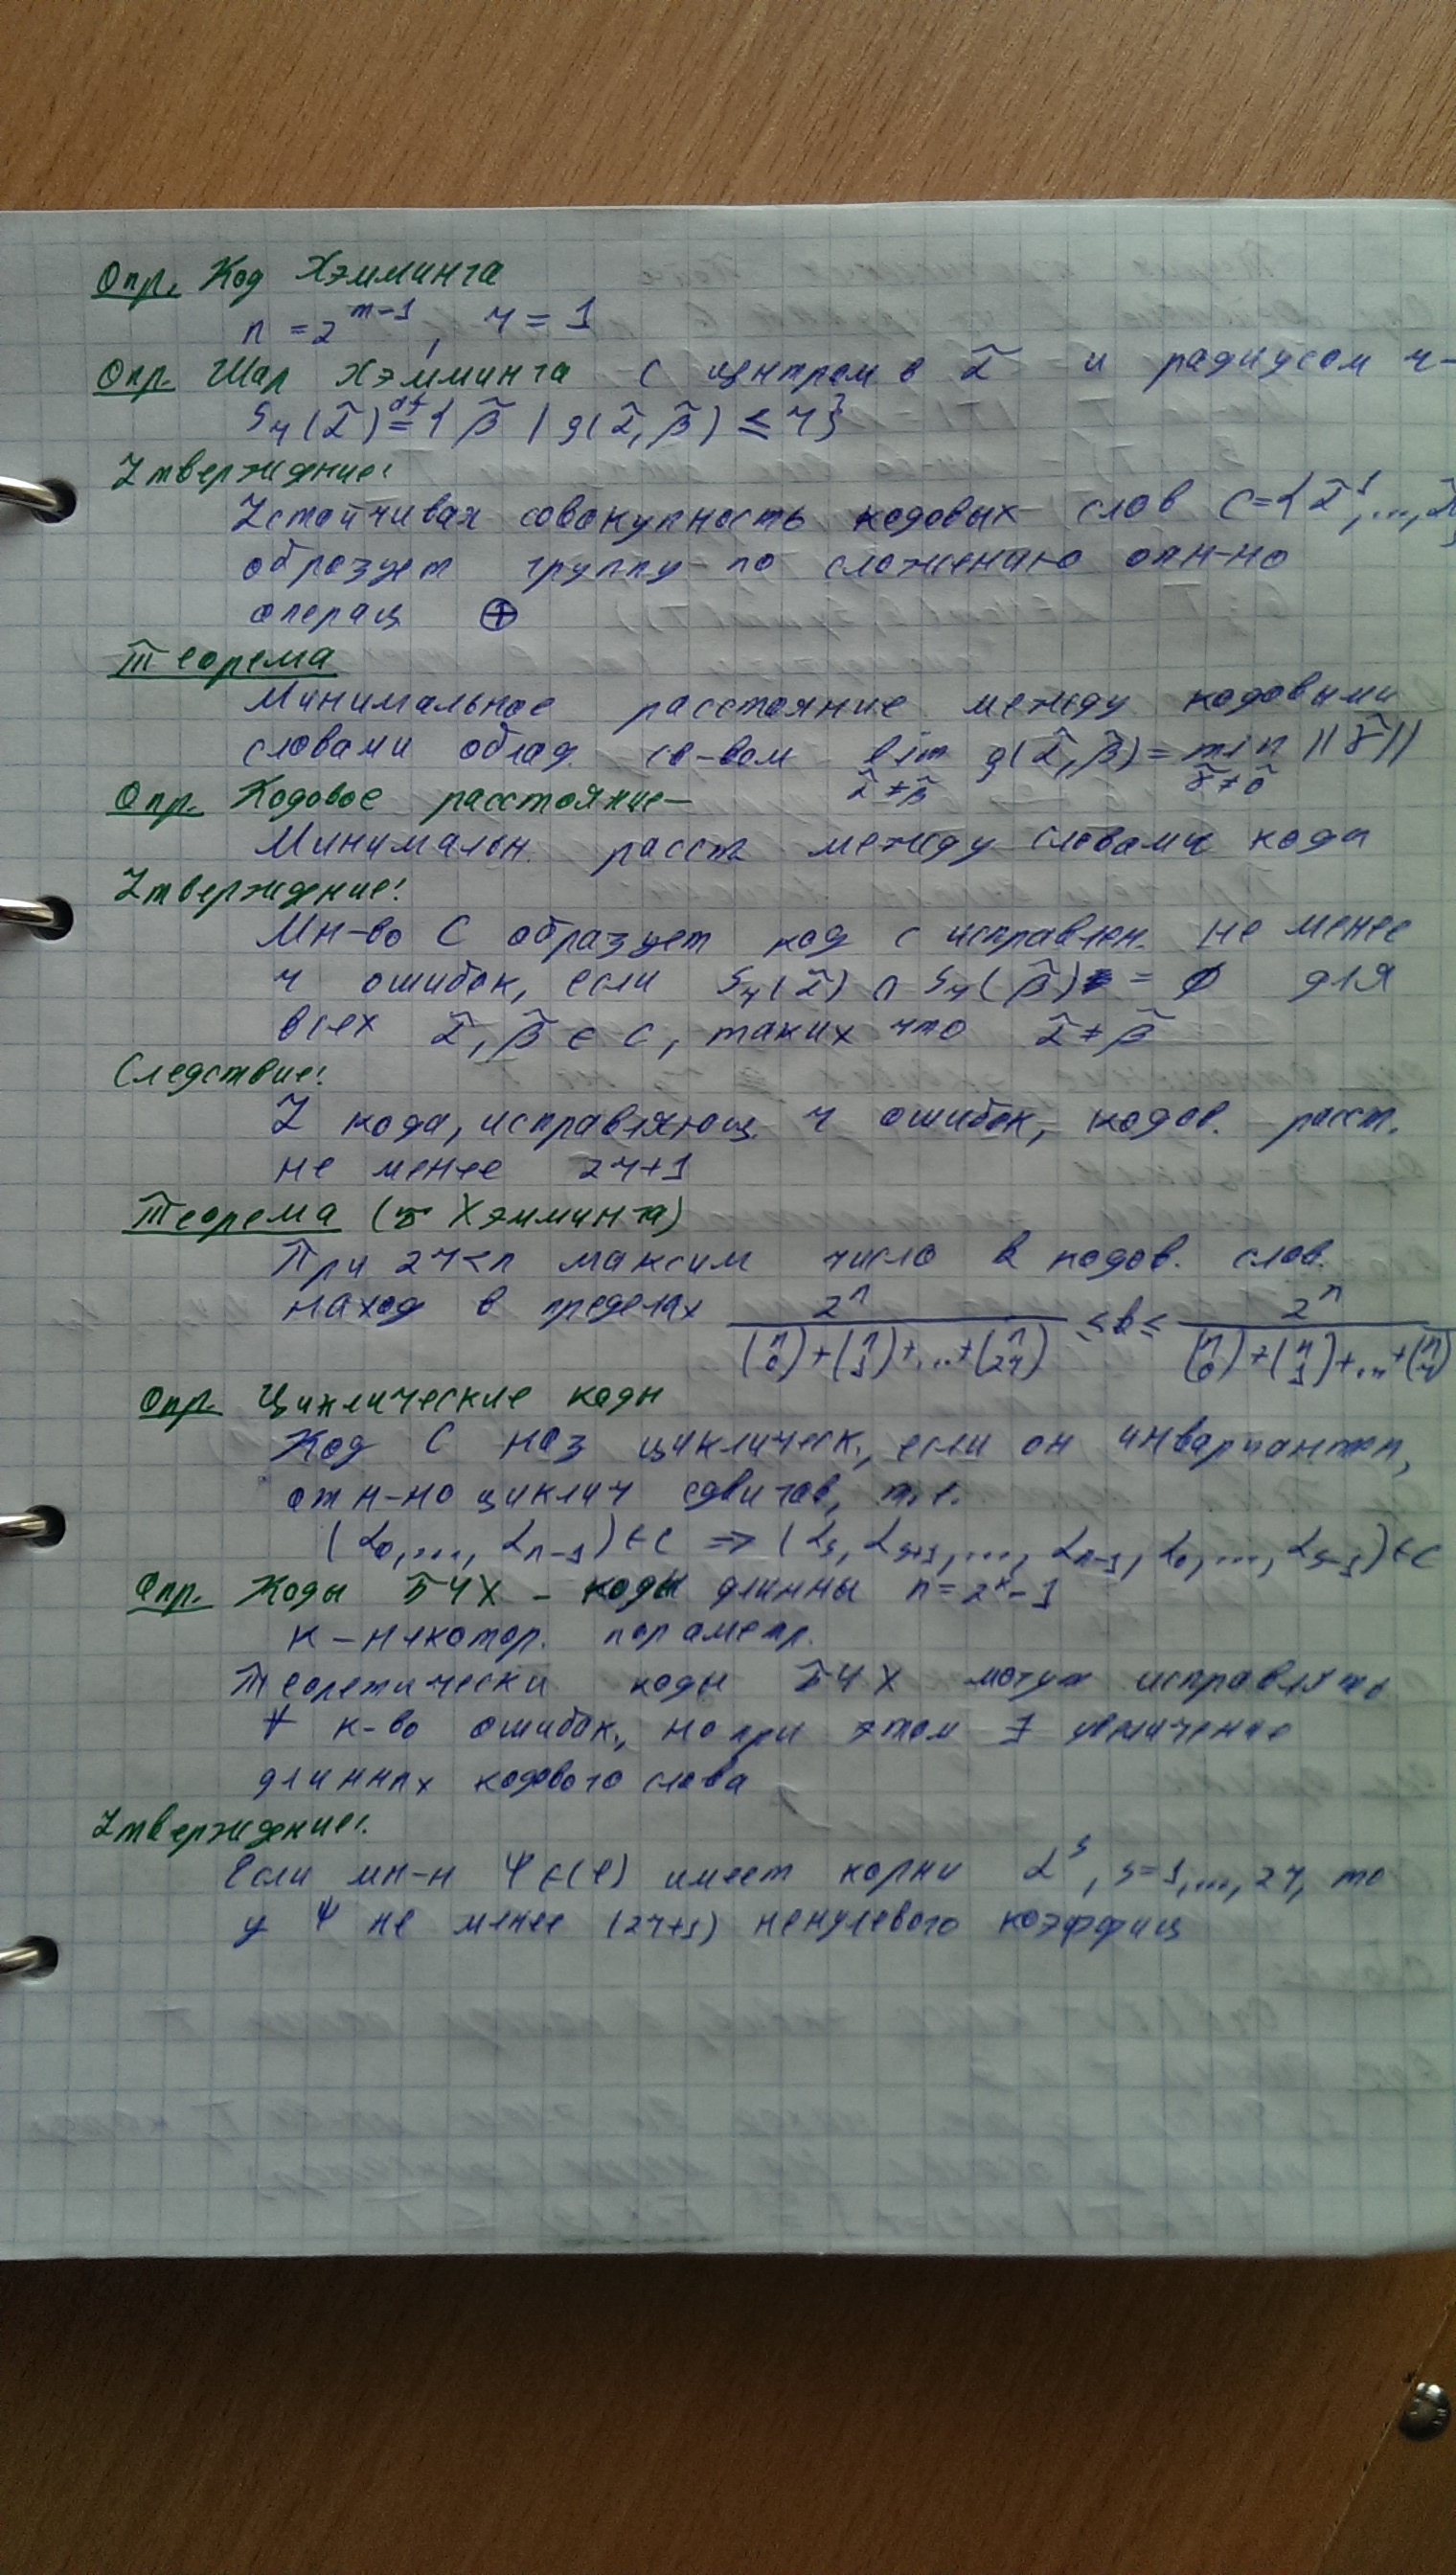 Опр. Код Хэмминга
n = 2^{m-1}, r = 1
Опр. Шар Хэмминга с центром в α̃ и радиусом r –
S_r(α̃) =^{df} {β̃ | ρ(α̃, β̃) ≤ r}
Утверждение:
Устойчивая совокупность кодовых слов C = {α̃^1, ..., α̃
образует группу по сложению отн-но
операц ⊕
Теорема
Минимальное расстояние между кодовыми
словами облад. св-вом lim_{α̃≠β̃} ρ(α̃, β̃) = min_{γ̃≠õ} ||γ̃||
Опр. Кодовое расстояние –
Минимальн. расст между словами кода
Утверждение:
Мн-во C образует код с исправлен. не менее
r ошибок, если S_r(α̃) ∩ S_r(β̃) = ∅ для
всех α̃, β̃ ∈ C, таких что α̃ ≠ β̃
Следствие:
У кода, исправляющ. r ошибок, кодов. расст.
не менее 2r+1
Теорема (Хэмминга)
При 2r<n максим число k кодов. слов.
наход в пределах 2^n / ((n 0) + (n 1) + ... + (n 2r)) ≤ k ≤ 2^n / ((n 0) + (n 1) + ... + (n r))
Опр. Циклические коды
Код C наз циклическ., если он инвариантен,
отн-но циклич сдвигов, т.е.
(α_0, ..., α_{n-1}) ∈ C ⇒ (α_s, α_{s+1}, ..., α_{n-1}, α_0, ..., α_{s-1}) ∈ C
Опр. Коды БЧХ – коды длинны n = 2^k – 1
k – некотор. параметр.
Теоретически коды БЧХ могут исправлять
∀ к-во ошибок, но при этом ∃ увеличение
длинных кодового слова
Утверждение:
Если мн-н Ψ ∈ (φ) имеет корни α^s, s=1,...,2r, то
у Ψ не менее (2r+1) ненулевого коэффиц